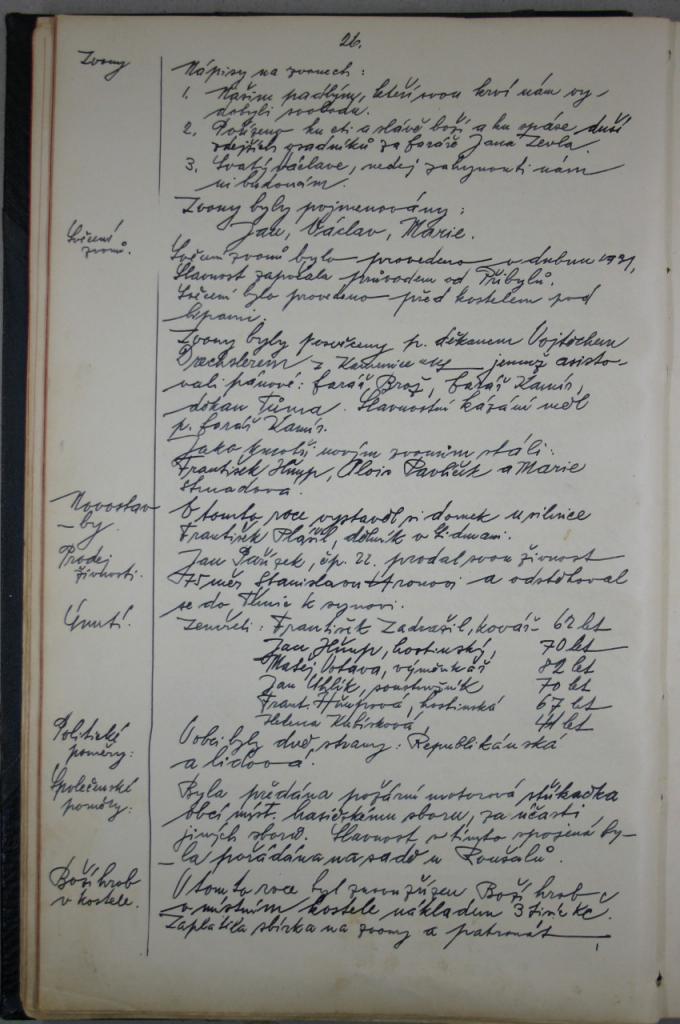 26.
Zvony
Nápisy na zvonech:
1. Našim padlým, kteří svou krví nám vy-
dobyli svobodu.
2. Pořízeno ku cti a slávě boží a ku spáse duší
zdejších osadníků za faráře Jana Zevla.
3. Svatý Václave, nedej zahynouti nám
ni budoucím.
Zvony byly pojmenovány:
Jan, Václav, Marie.
Svěcení
zvonů.
Svěcení zvonů bylo provedeno v dubnu 1931,
Slavnost započala průvodem od Přibylů.
Svěcení bylo provedeno před kostelem pod
lipami.
Zvony byly posvěceny p. děkanem Vojtěchem
Drechslerem z Kamenice n/L jemuž asisto-
vali pánové: farář Brož, farář Kamiš,
děkan Tůma. Slavnostní kázání měl
p. farář Kamiš.
Jako kmotři novým zvonům stáli:
František Hump, Alois Pavlíček a Marie
Strnadova.
Novostav-
by.
V tomto roce vystavěl si domek u silnice
František Plašil, dělník v Židmani.
Prodej
živnosti.
Jan čp. 22. prodal svou živnost
75 měr Stanislavu a odstěhoval
se do k synovi.
Úmrtí.
Zemřeli: František Zadražil, kovář 62 let
Jan Hump, hostinský, 70 let
Matěj Votava, výměnkář 82 let
Jan Uhlík, soustružník 70 let
Frant. Humpová, hostinská 67 let
Helena Kubírková, 44 let
Politické
poměry:
V obci byly dvě strany: Republikánská
a lidová.
Společenské
poměry:
Byla předána požární motorová stříkačka
obcí míst. hasičskému sboru, za účasti
jiných sborů. Slavnost s tímto spojená by-
la pořádána na sadě u Roušalů.
Boží hrob
v kostele.
V tomto roce byl znovuzřízen Boží hrob
v místním kostele nákladem 3 tisíc Kč.
Zaplatila sbírka na zvony a patronát